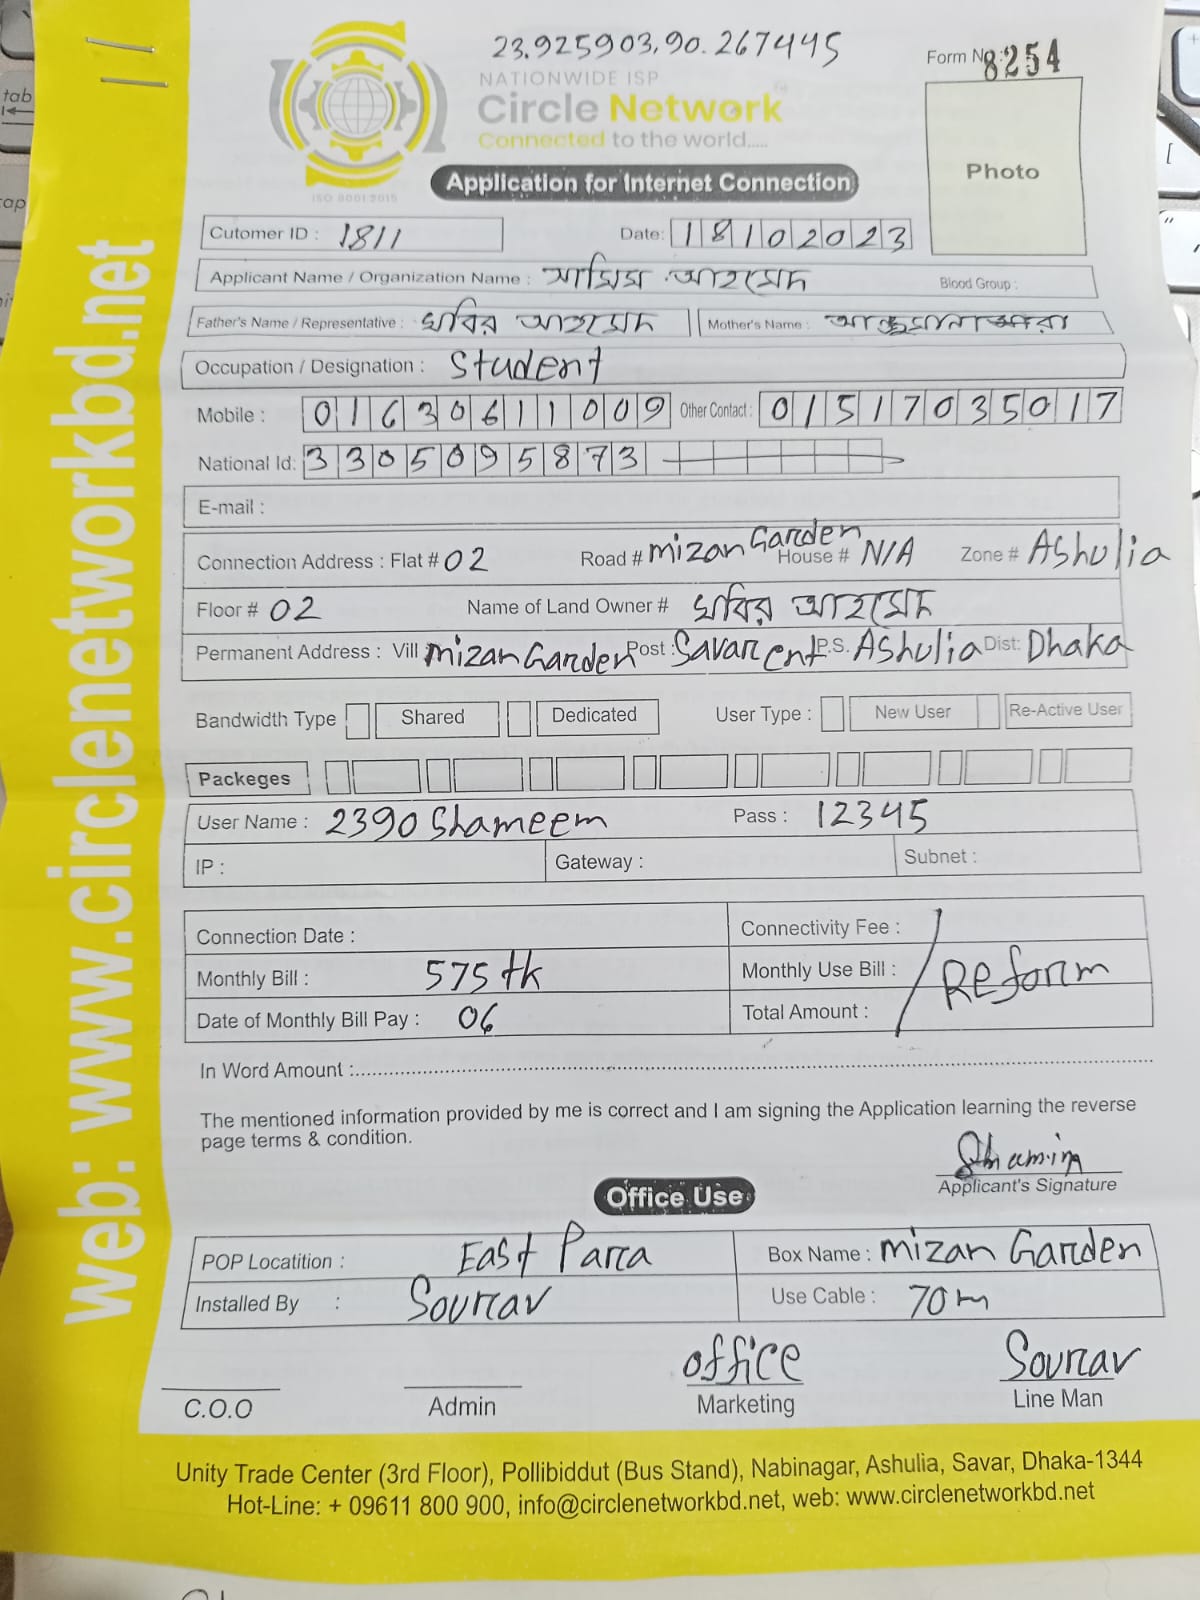 23.925903,90.267445
Form No: 8254
NATIONWIDE ISP
Circle Network
Connected to the world.....
ISO 9001:2015
Application for Internet Connection
Photo
Cutomer ID : 1811
Date: 18102023
Applicant Name / Organization Name : আহমেদ
Blood Group :
Father's Name / Representative : আহমেদ
Mother's Name :
Occupation / Designation : Student
Mobile : 01630611009 Other Contact : 01517035017
National Id: 3305095873
E-mail :
Connection Address : Flat # 02 Road # mizan Garden House # N/A Zone # Ashulia
Floor # 02 Name of Land Owner # আহমেদ
Permanent Address : Vill mizan Garden Post : Savar cent P.S. Ashulia Dist: Dhaka
Bandwidth Type Shared Dedicated User Type : New User Re-Active User
Packeges
User Name : 2390 Shameem Pass : 12345
IP : Gateway : Subnet :
Connection Date : Connectivity Fee :
Monthly Bill : 575 tk Monthly Use Bill : Reform
Date of Monthly Bill Pay : 06 Total Amount :
In Word Amount :
The mentioned information provided by me is correct and I am signing the Application learning the reverse
page terms & condition.
Shamim
Applicant's Signature
Office Use
POP Locatition : East Parra Box Name : mizan Garden
Installed By : Sourav Use Cable : 70m
office Sourav
C.O.O Admin Marketing Line Man
Unity Trade Center (3rd Floor), Pollibiddut (Bus Stand), Nabinagar, Ashulia, Savar, Dhaka-1344
Hot-Line: + 09611 800 900, info@circlenetworkbd.net, web: www.circlenetworkbd.net
web: www.circlenetworkbd.net